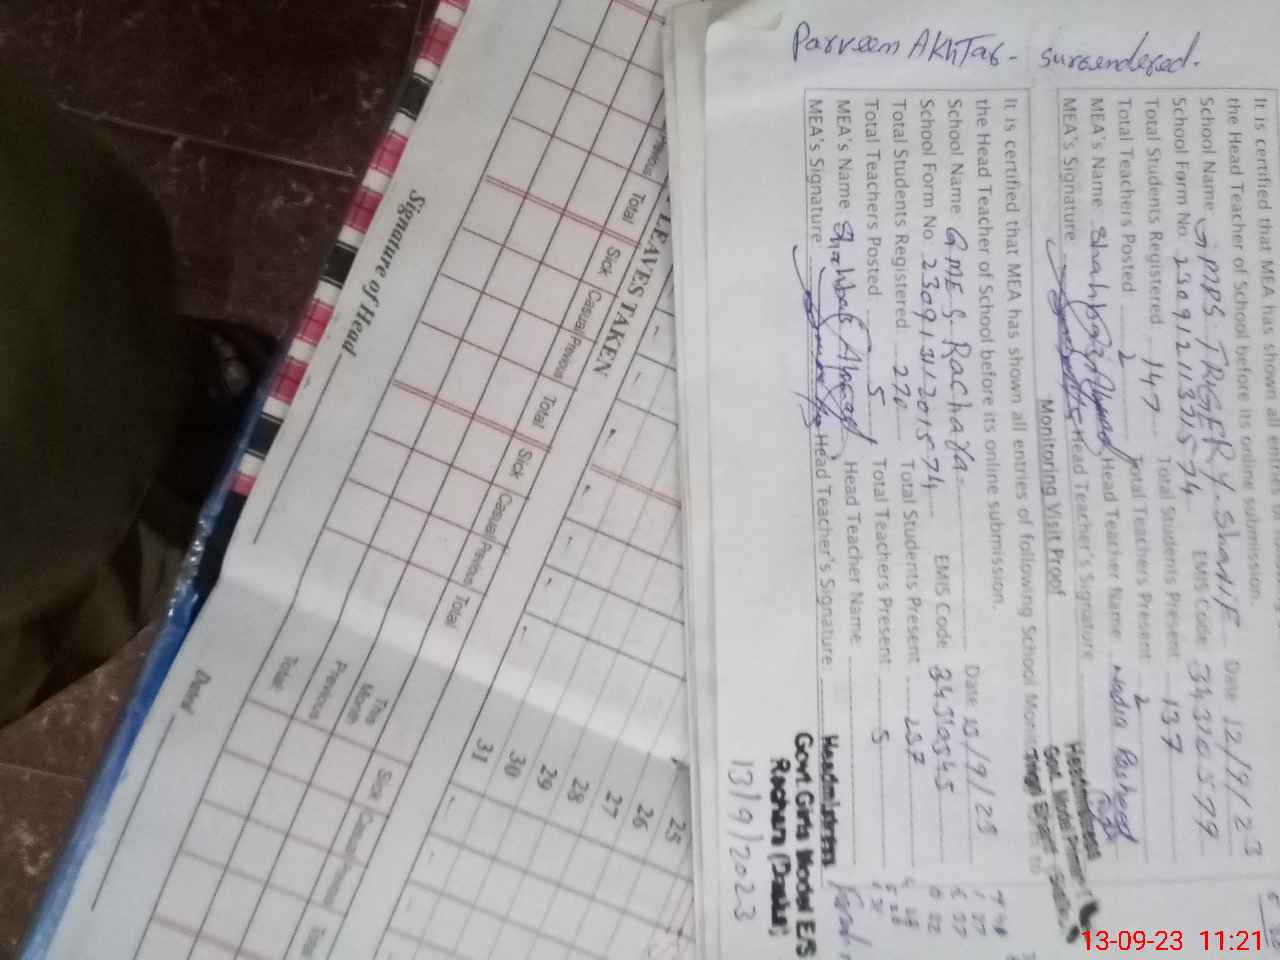 Parveen Akhtar - surrendered.
It is certified that MEA has shown all
the Head Teacher of School before its online submission.
School Name GMPS. TRIGERY-SHARIF Date 12/9/23
School Form No 230912113715-74 EMIS Code 34310579
Total Students Registered 147 Total Students Present 137
Total Teachers Posted 2 Total Teachers Present 2
MEA's Name Shahbaz Ahmad Head Teacher Name Nadia Rasheed
MEA's Signature Head Teacher's Signature
Headmistress
Govt. Model Primary
Monitoring Visit Proof
It is certified that MEA has shown all entries of following School
the Head Teacher of School before its online submission.
School Name GMES-Rachaya- Date 13/9/23
School Form No EMIS Code
Total Students Registered 270 Total Students Present 237
Total Teachers Posted 5 Total Teachers Present 5
MEA's Name Shahbaz Ahmad Head Teacher Name
MEA's Signature Head Teacher's Signature
Headmistress
Govt. Girls Model E/S
13/9/2023
LEAVES TAKEN
Previous
Total
Sick
Casual
Previous
Total
Sick
Casual
Previous
Total
Signature of Head
25
26
27
28
29
30
31
This Month
Previous
Total
Sick
Casual
Previous
Total
Dated
13-09-23 11:21